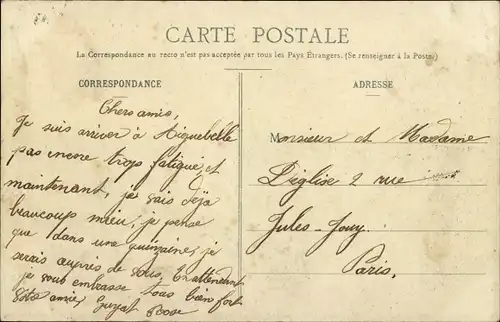 CARTE POSTALE
La Correspondance au recto n'est pas acceptée par tous les Pays Étrangers. (Se renseigner à la Poste)
CORRESPONDANCE
ADRESSE
Chers amis,
Je suis arriver à Aiguebelle
pas encore trop fatigué, et
maintenant, je vais déjà
beaucoup mieu, je pense
que dans une quinzaine, je
serais auprès de vous, En attendant
je vous embrasse tous bien fort
Votre amie, Rose
Monsieur et Madame
L'église 2 rue
Jules-Jouy
Paris.